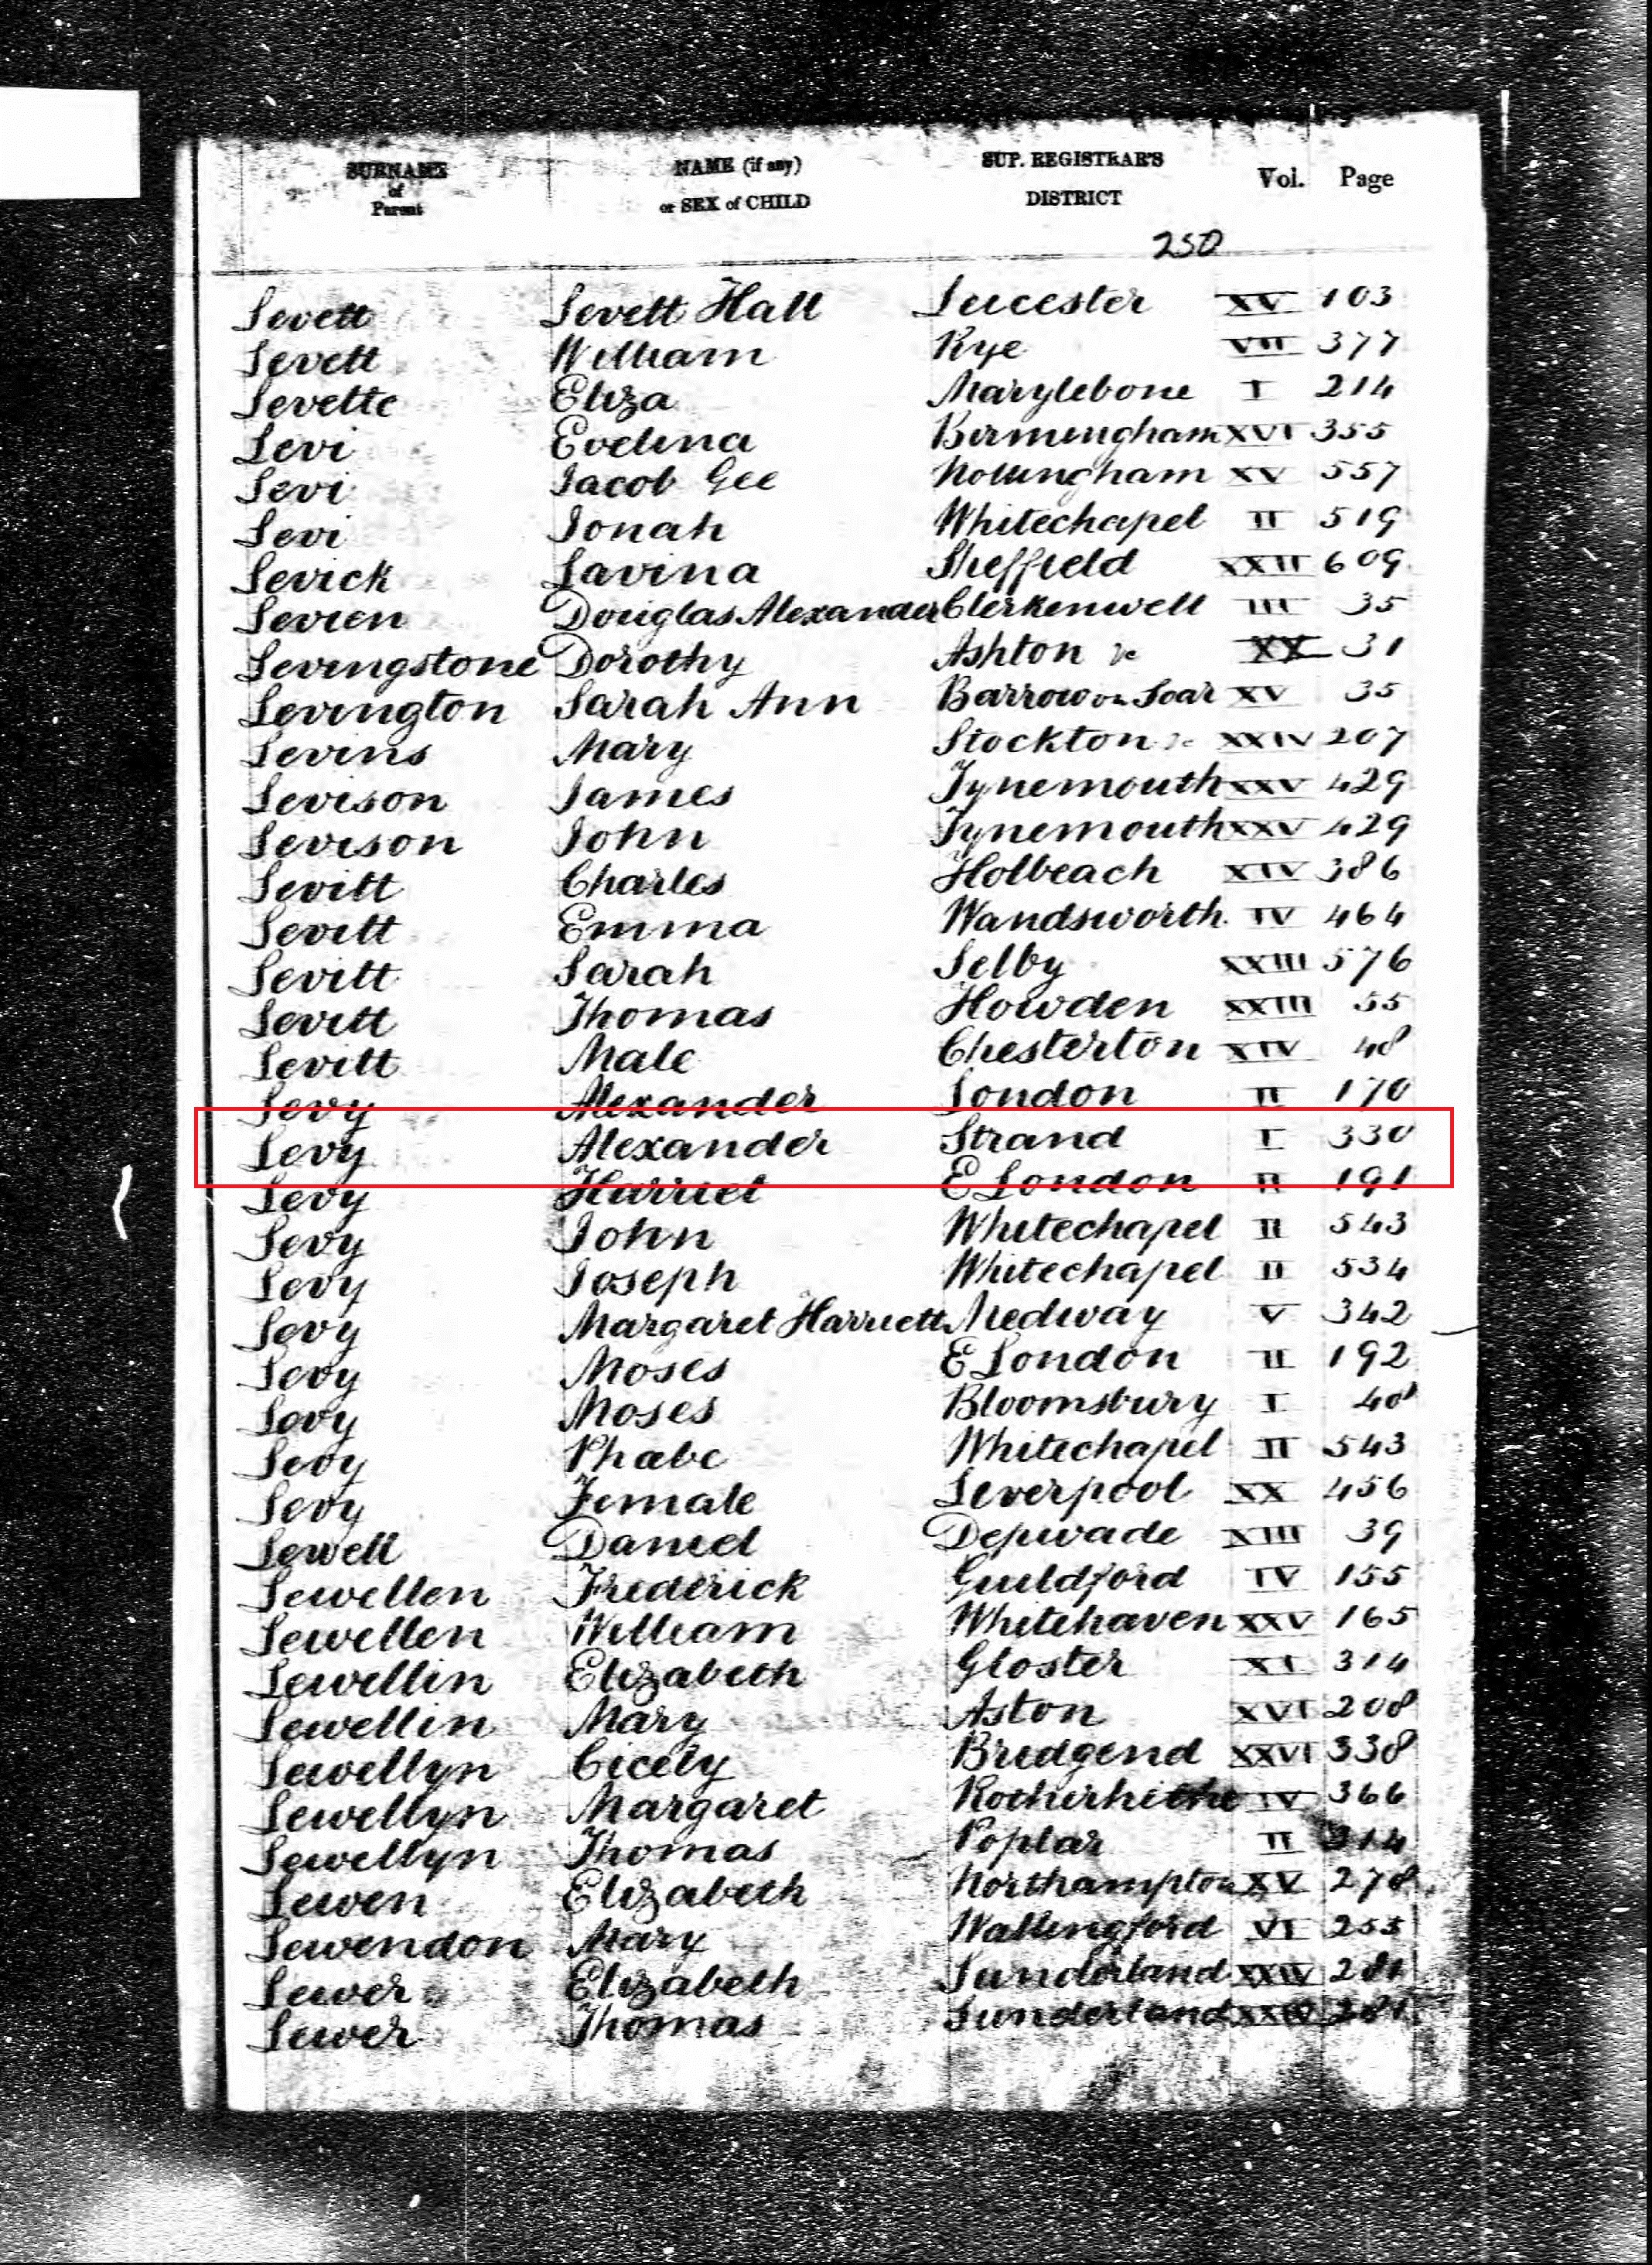 SURNAME of Parent NAME (if any) or SEX of CHILD SUP. REGISTRAR'S DISTRICT Vol. Page
250
Levett Levett Hall Leicester XV 103
Levett William Rye VII 377
Levette Eliza Marylebone I 214
Levi Evelina Birmingham XVI 355
Levi Jacob Gee Nottingham XV 557
Levi Jonah Whitechapel II 519
Levick Lavina Sheffield XXII 609
Levien Douglas Alexander Clerkenwell III 35
Levingstone Dorothy Ashton &c XX 31
Levington Sarah Ann Barrow on Soar XV 35
Levins Mary Stockton &c XXIV 207
Levison James Tynemouth XXV 429
Levison John Tynemouth XXV 429
Levitt Charles Holbeach XIV 386
Levitt Emma Wandsworth IV 464
Levitt Sarah Selby XXIII 576
Levitt Thomas Howden XXIII 55
Levitt Male Chesterton XIV 48
Levy Alexander London II 170
Levy Alexander Strand I 330
Levy Harriet E London II 191
Levy John Whitechapel II 543
Levy Joseph Whitechapel II 534
Levy Margaret Harriett Medway V 342
Levy Moses E London II 192
Levy Moses Bloomsbury I 40
Levy Phabe Whitechapel II 543
Levy Female Liverpool XX 456
Lewell Daniel Depwade XIII 39
Lewellen Frederick Guildford IV 155
Lewellen William Whitehaven XXV 165
Lewellin Elizabeth Gloster XI 314
Lewellin Mary Aston XVI 208
Lewellyn Cicely Bridgend XXVI 338
Lewellyn Margaret Rotherhithe IV 366
Lewellyn Thomas Poplar II 314
Lewen Elizabeth Northampton XV 278
Lewendon Mary Wallingford VI 255
Lewer Elizabeth Sunderland XXIV 281
Lewer Thomas Sunderland XXIV 281